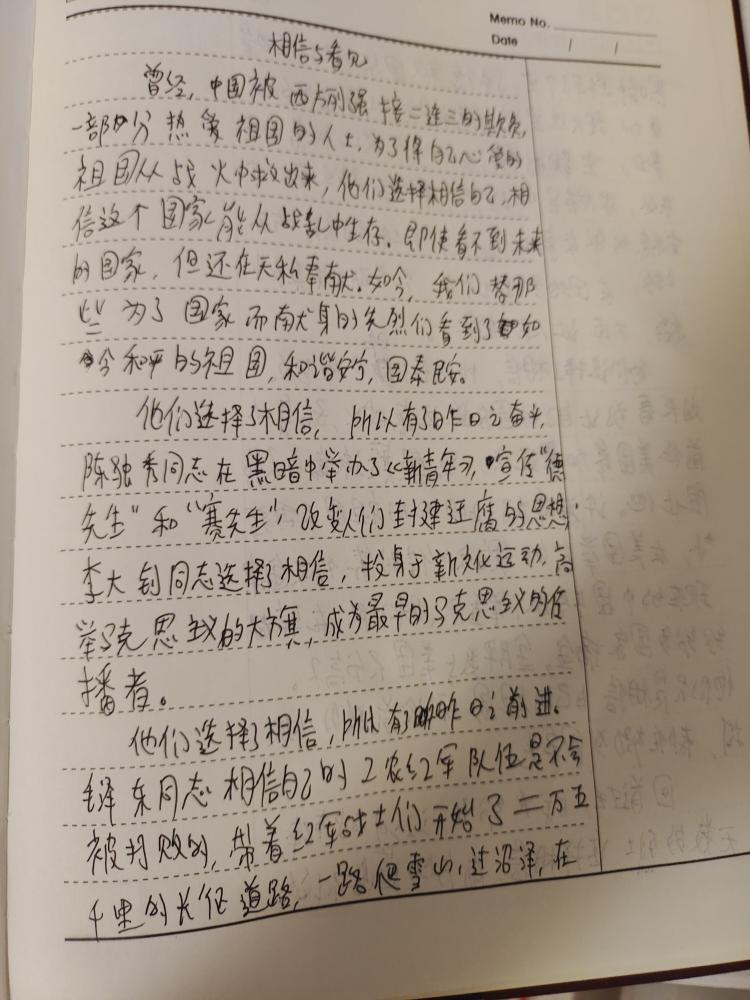 Memo No.
Date / /
相信与看见
曾经,中国被西方列强接二连三的欺负,
一部分热爱祖国的人士,为了将自己心爱的
祖国从战火中救出来,他们选择相信自己,相
信这个国家能从战乱中生存。即使看不到未来
的国家,但还在无私奉献。如今,我们替那
些为了国家而献身的先烈们看到了如
今和平的祖国,和谐安宁,国泰民安。
他们选择了相信,所以有了昨日之奋斗,
陈独秀同志在黑暗中举办了《新青年》,宣传“德
先生”和“赛先生”,改变人们封建迂腐的思想.
李大钊同志选择了相信,投身于新文化运动,高
举马克思主义的大旗,成为最早的马克思主义的传
播者。
他们选择了相信,所以有了昨日之前进。
毛泽东同志相信自己的工农红军队伍是不会
被打败的,带着红军战士们开始了二万五
千里的长征道路,一路爬雪山,过沼泽,在